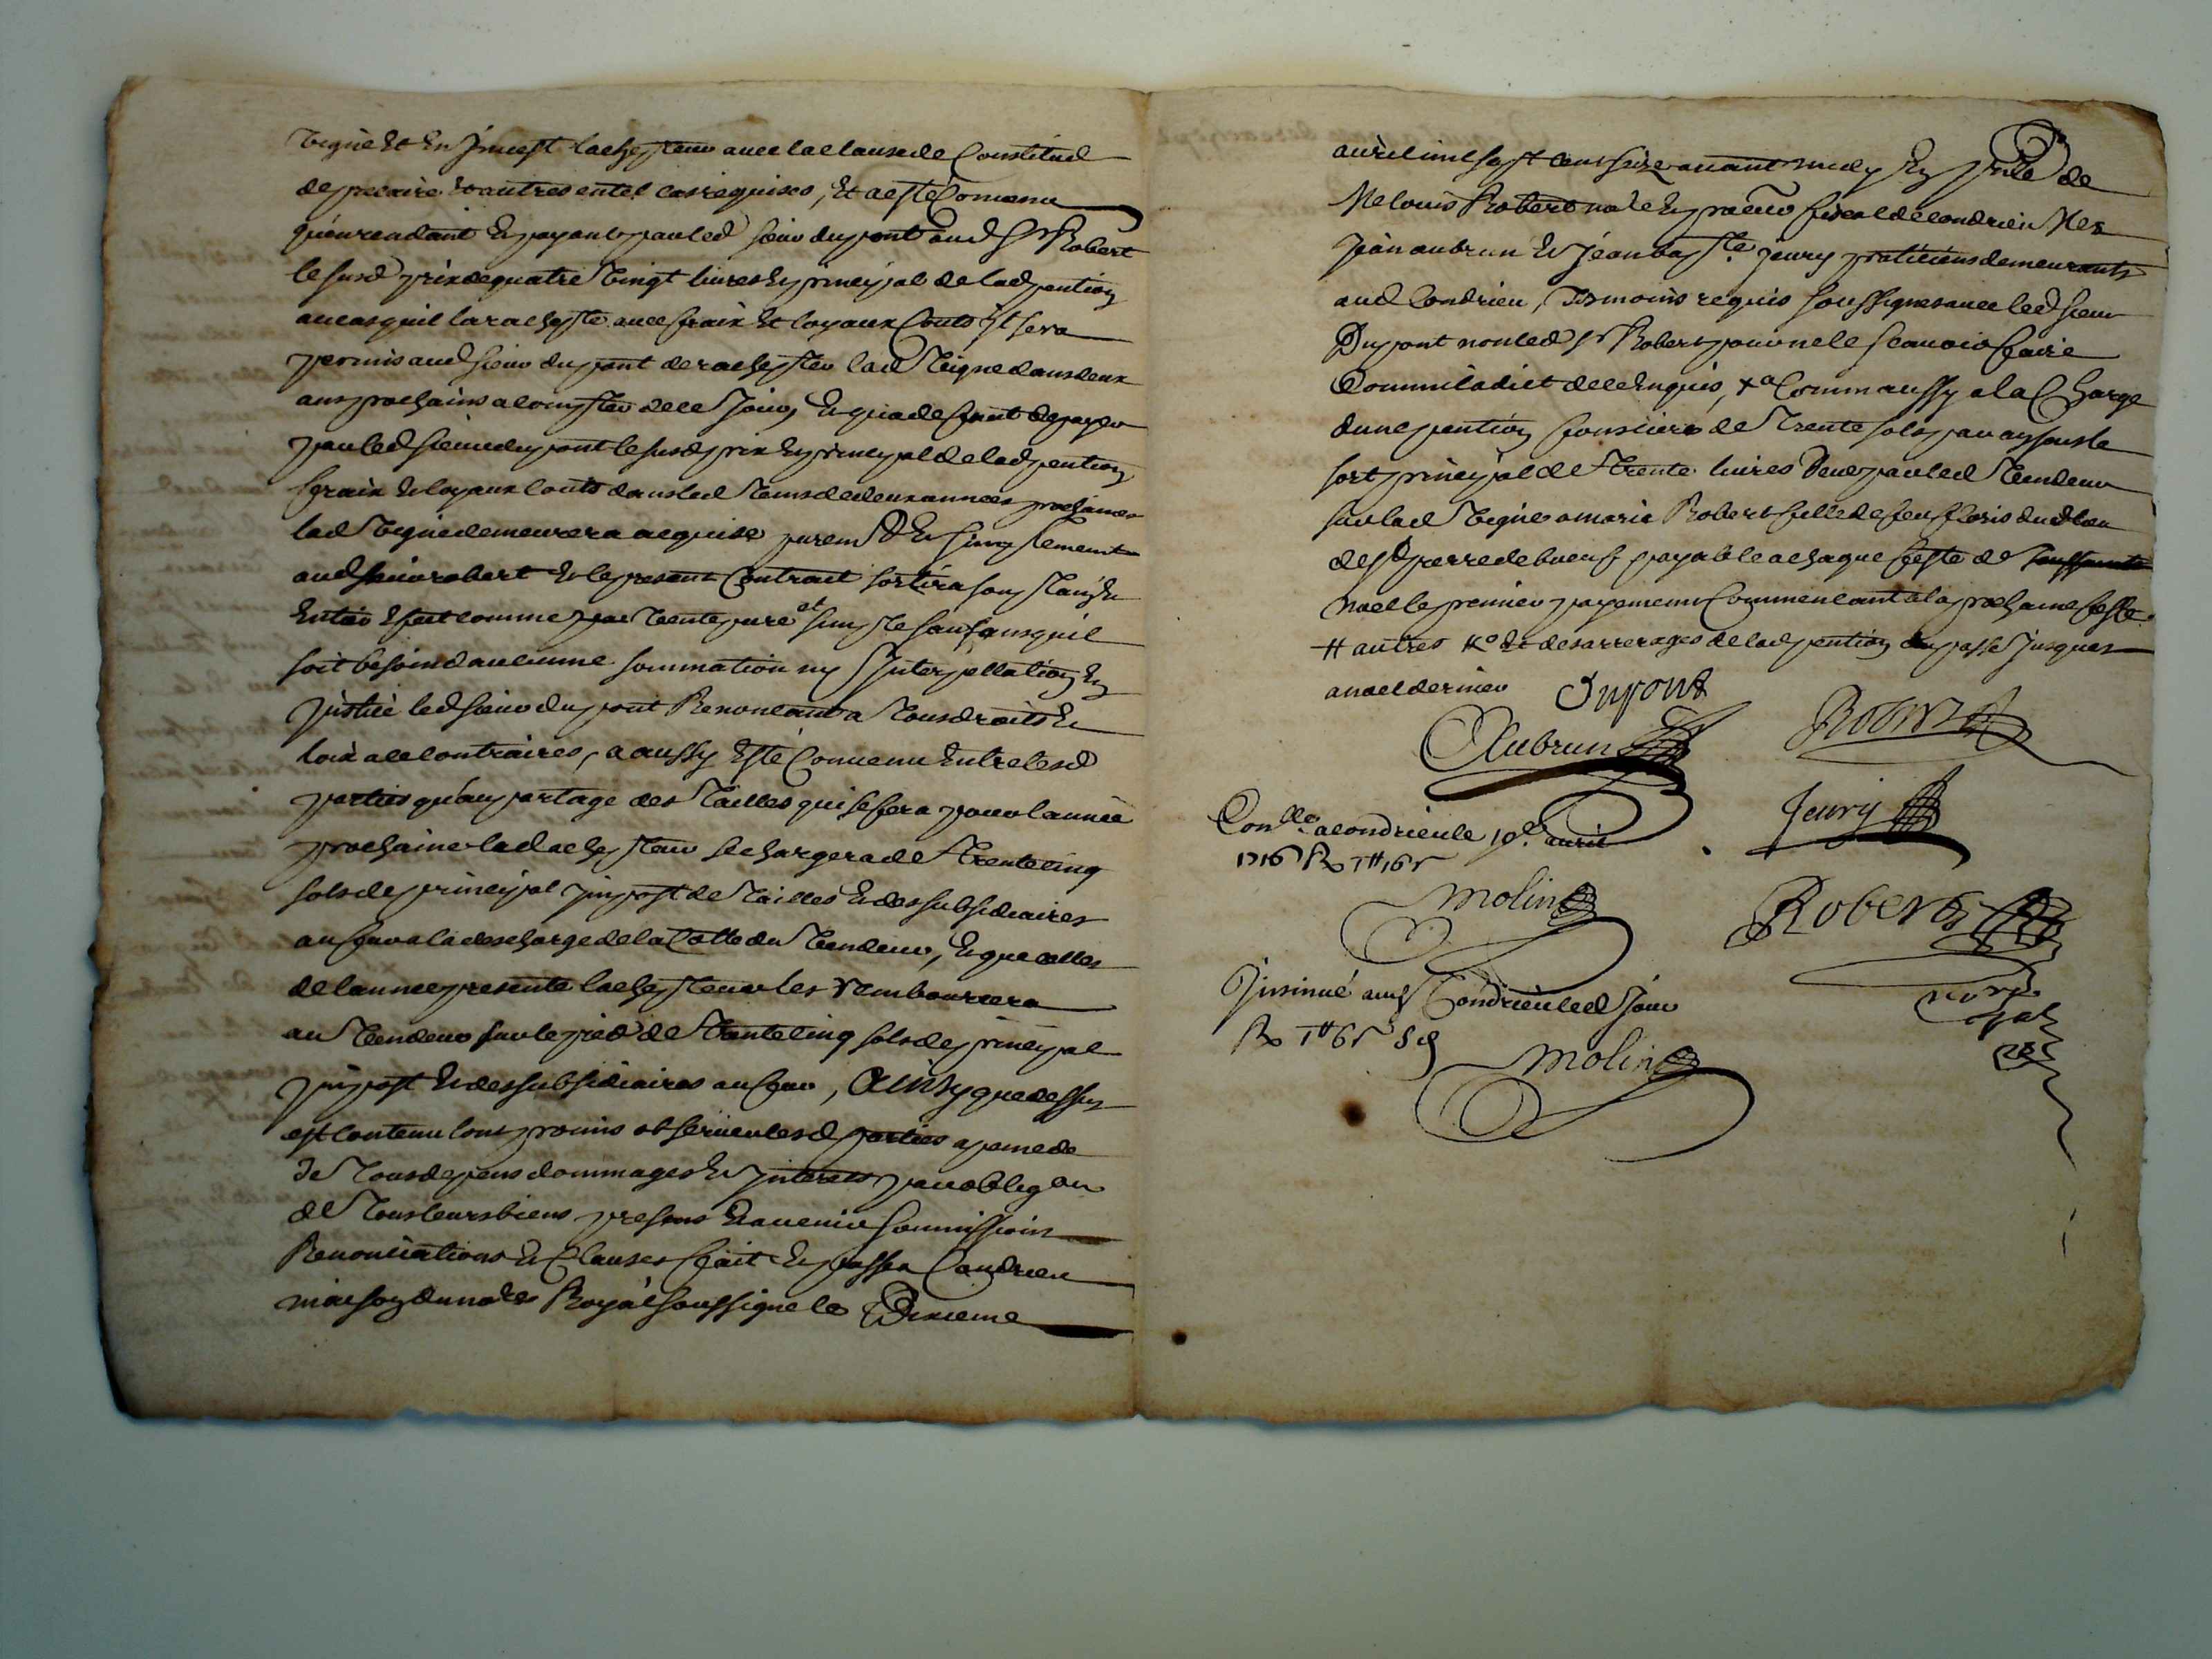 vigne et en jnvest lachepteur avec la clause de Constitud
de precaire et autres en tel cas requises, Et a esté Convenu
qu'en rendant et payant par led sieur dupont aud Sr Robert
le susd prix de quatre vingt livres en principal de lad pention
au cas quil la rachepte avec fraix et loyaux Couts il sera
permis aud sieur dupont de rachepter lad vigne dans deux
ans prochains a compter de ce Jour, Et qua deffaut de payer
par led sieur dupont le susd prix en principal de lad pention
fraix et loyaux Couts dans led tems de deux années prochaines
lad vigne demeurera acquise purement et simplement
aud sieur robert et le present Contract sortira son plain et
entier effet comme par vente pure et simple sans quil
soit besoin d'aucunne sommation ny Interpellation en
justice led sieur dupont Renoncant a tous droits et
loix a ce contraires, a aussy Esté Convenu Entre lesd
parties qu'au partage des tailles qui se fera pour l'année
prochaine lad achepteur se chargera de trente cinq
sols de principal jmpost de tailles et des subsidiaires
au fur a la descharge de la Cotte du vendeur, Et que celles
de l'année presente lachepteur les remboursera
au vendeur sur le pied de trente cinq sols de principal
jmpost et des subsidiaires au fur, Ainsy que dessus
est contenu l'ont promis observer lesd parties a peine de
de tous depens dommages et jnterets par obligon
de tous leurs biens presens et avenir soumissions
Renonciations et Clauses fait et passé a Condrieu
maison du notre Royal soussigné le Dixieme
avril mil sept cent seize avant midy En pnce de
Me louis Robert nore et procur fiscal de Condrieu Mes
Jean aubrun et Jean bapte Jeury praticiens demeurants
aud Condrieu, tesmoins requis soussignes avec led sieur
Dupont non led Sr Robert pour ne le scavoir faire
Comm'il a dict de ce Enquis, +a Comm aussy a la Charge
dune pention fonciere de trente sols par an sous le
sort principal de trente livres Deue par led vendeur
sur lad vigne a marie Robert fille de feu floris dud lieu
de St pierre de boeuf payable a chaque feste de
Noel le premier payement Commencant a la prochaine feste
# autres Ko et des arrerages de lad pention du passé Jusques
a noel dernier Dupont
Aubrun Robert
Conlle a condrieu le 19e avril Jeury
1716 R
Molin Robert
Jnsinué aud Condrieu led Jour
R
Molin